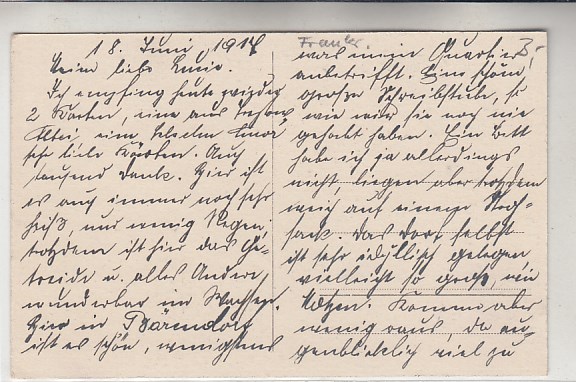 18. Juni 1917
Meine liebe Luzie.
Ich empfing heute wieder
2 Karten, eine aus
sehr liebe Karten. Auch
tausend Dank. Hier ist
es auch immer noch sehr
heiß, und wenig Regen,
trotzdem ist hier das Ge-
treide u. alles Andere
wunderbar im Wachsen.
Hier in Bärendorf
ist es schön, wenigstens
Frankr.
was mein Quartier
anbetrifft. Eine schöne
große Schreibstube, so
wie wir sie noch nie
gehabt haben. Ein Bett
habe ich ja allerdings
nicht, liegen aber trotzdem
weich auf einem Stroh-
sack. Das Dorf selbst
ist sehr idyllisch gelegen
vielleicht so groß, wie
Komme aber
wenig raus, da au-
genblicklich viel zu